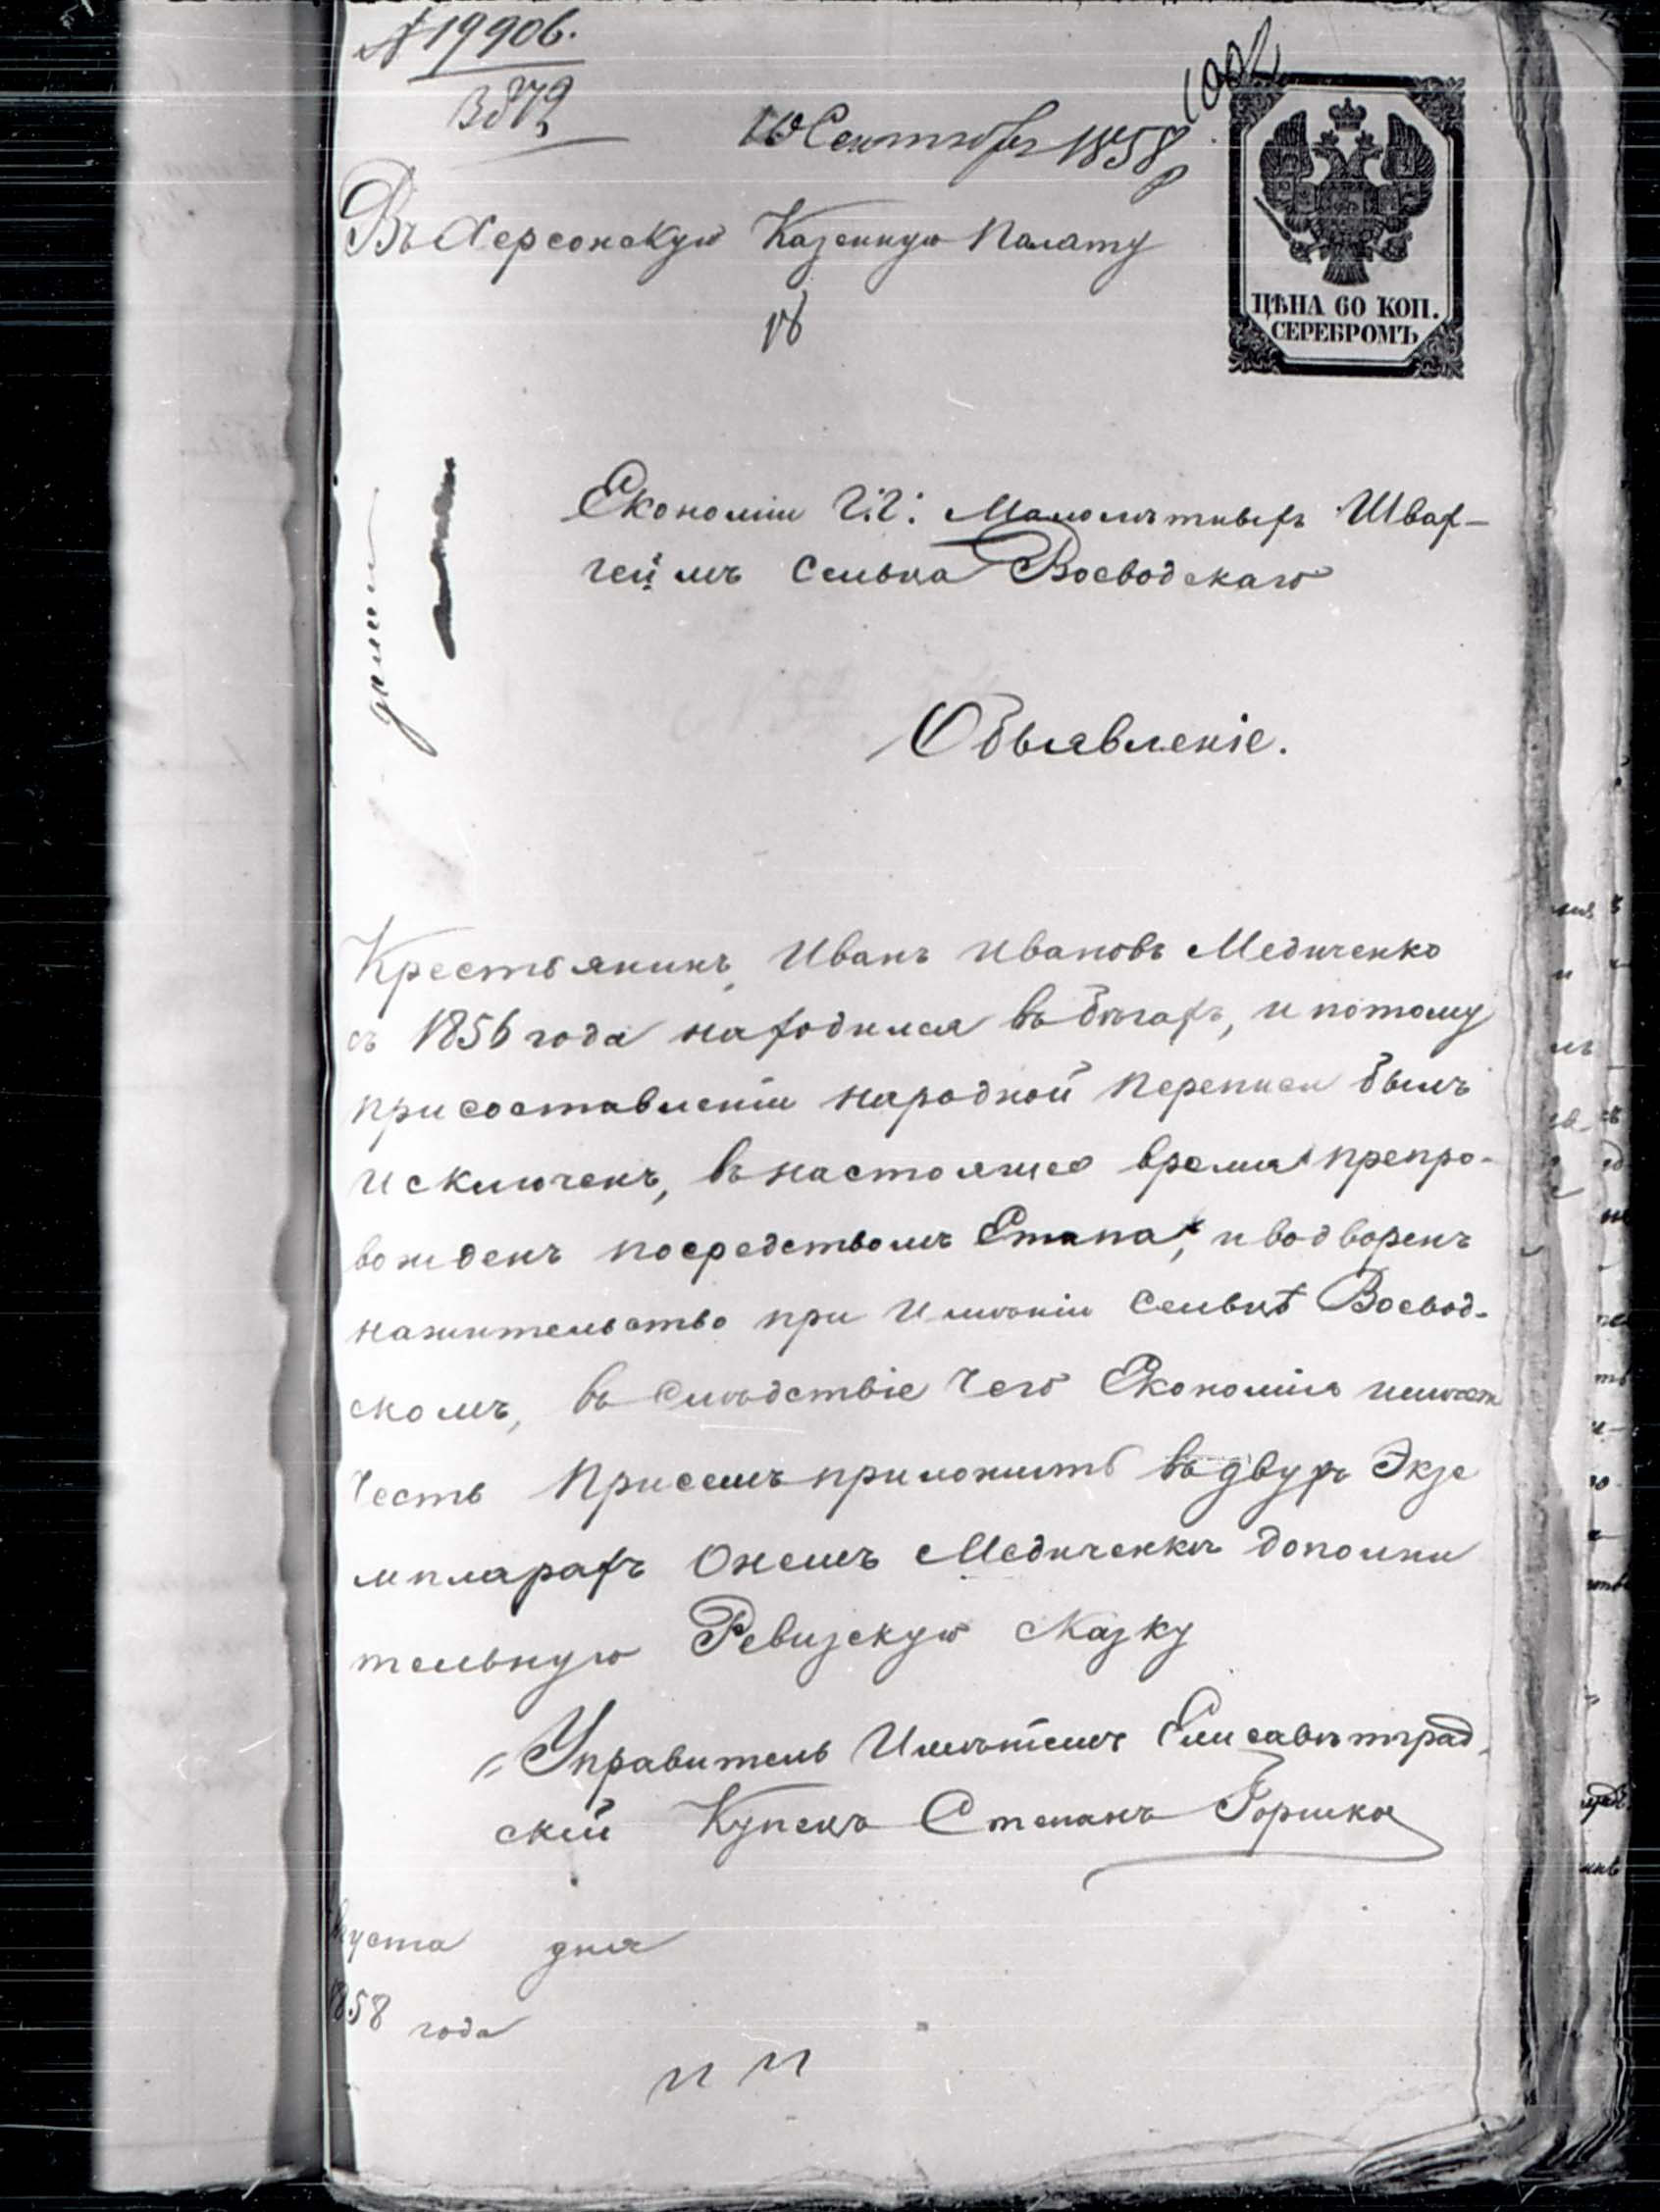 № 19906.
10 Сентября 1858
Въ Херсонскую Казенную Палату
ЦѢНА 60 КОП.
СЕРЕБРОМЪ
Економіи Г.Г. Малолѣтныхъ Швах-
геймъ Сельца Воеводскаго
Объявленіе.
Крестьянинъ, Иванъ Ивановъ Медиченко
съ 1856 года находился въ бѣгахъ, и потому
при составленіи народной переписи былъ
исключенъ, въ настоящее время препро-
вожденъ посредствомъ Етапа, и водворенъ
нажительство при Имѣніи Сельцѣ Воевод-
скомъ, въ Слѣдствіе Чего Економія имѣетъ
Честь Присемъ приложить въ двухъ Экзе
мпларахъ Онемъ Медиченкѣ дополни
тельную Ревизскую Сказку
Управитель Имѣніемъ Елисаветград-
скій Купецъ Степанъ
Августа дня
1858 года